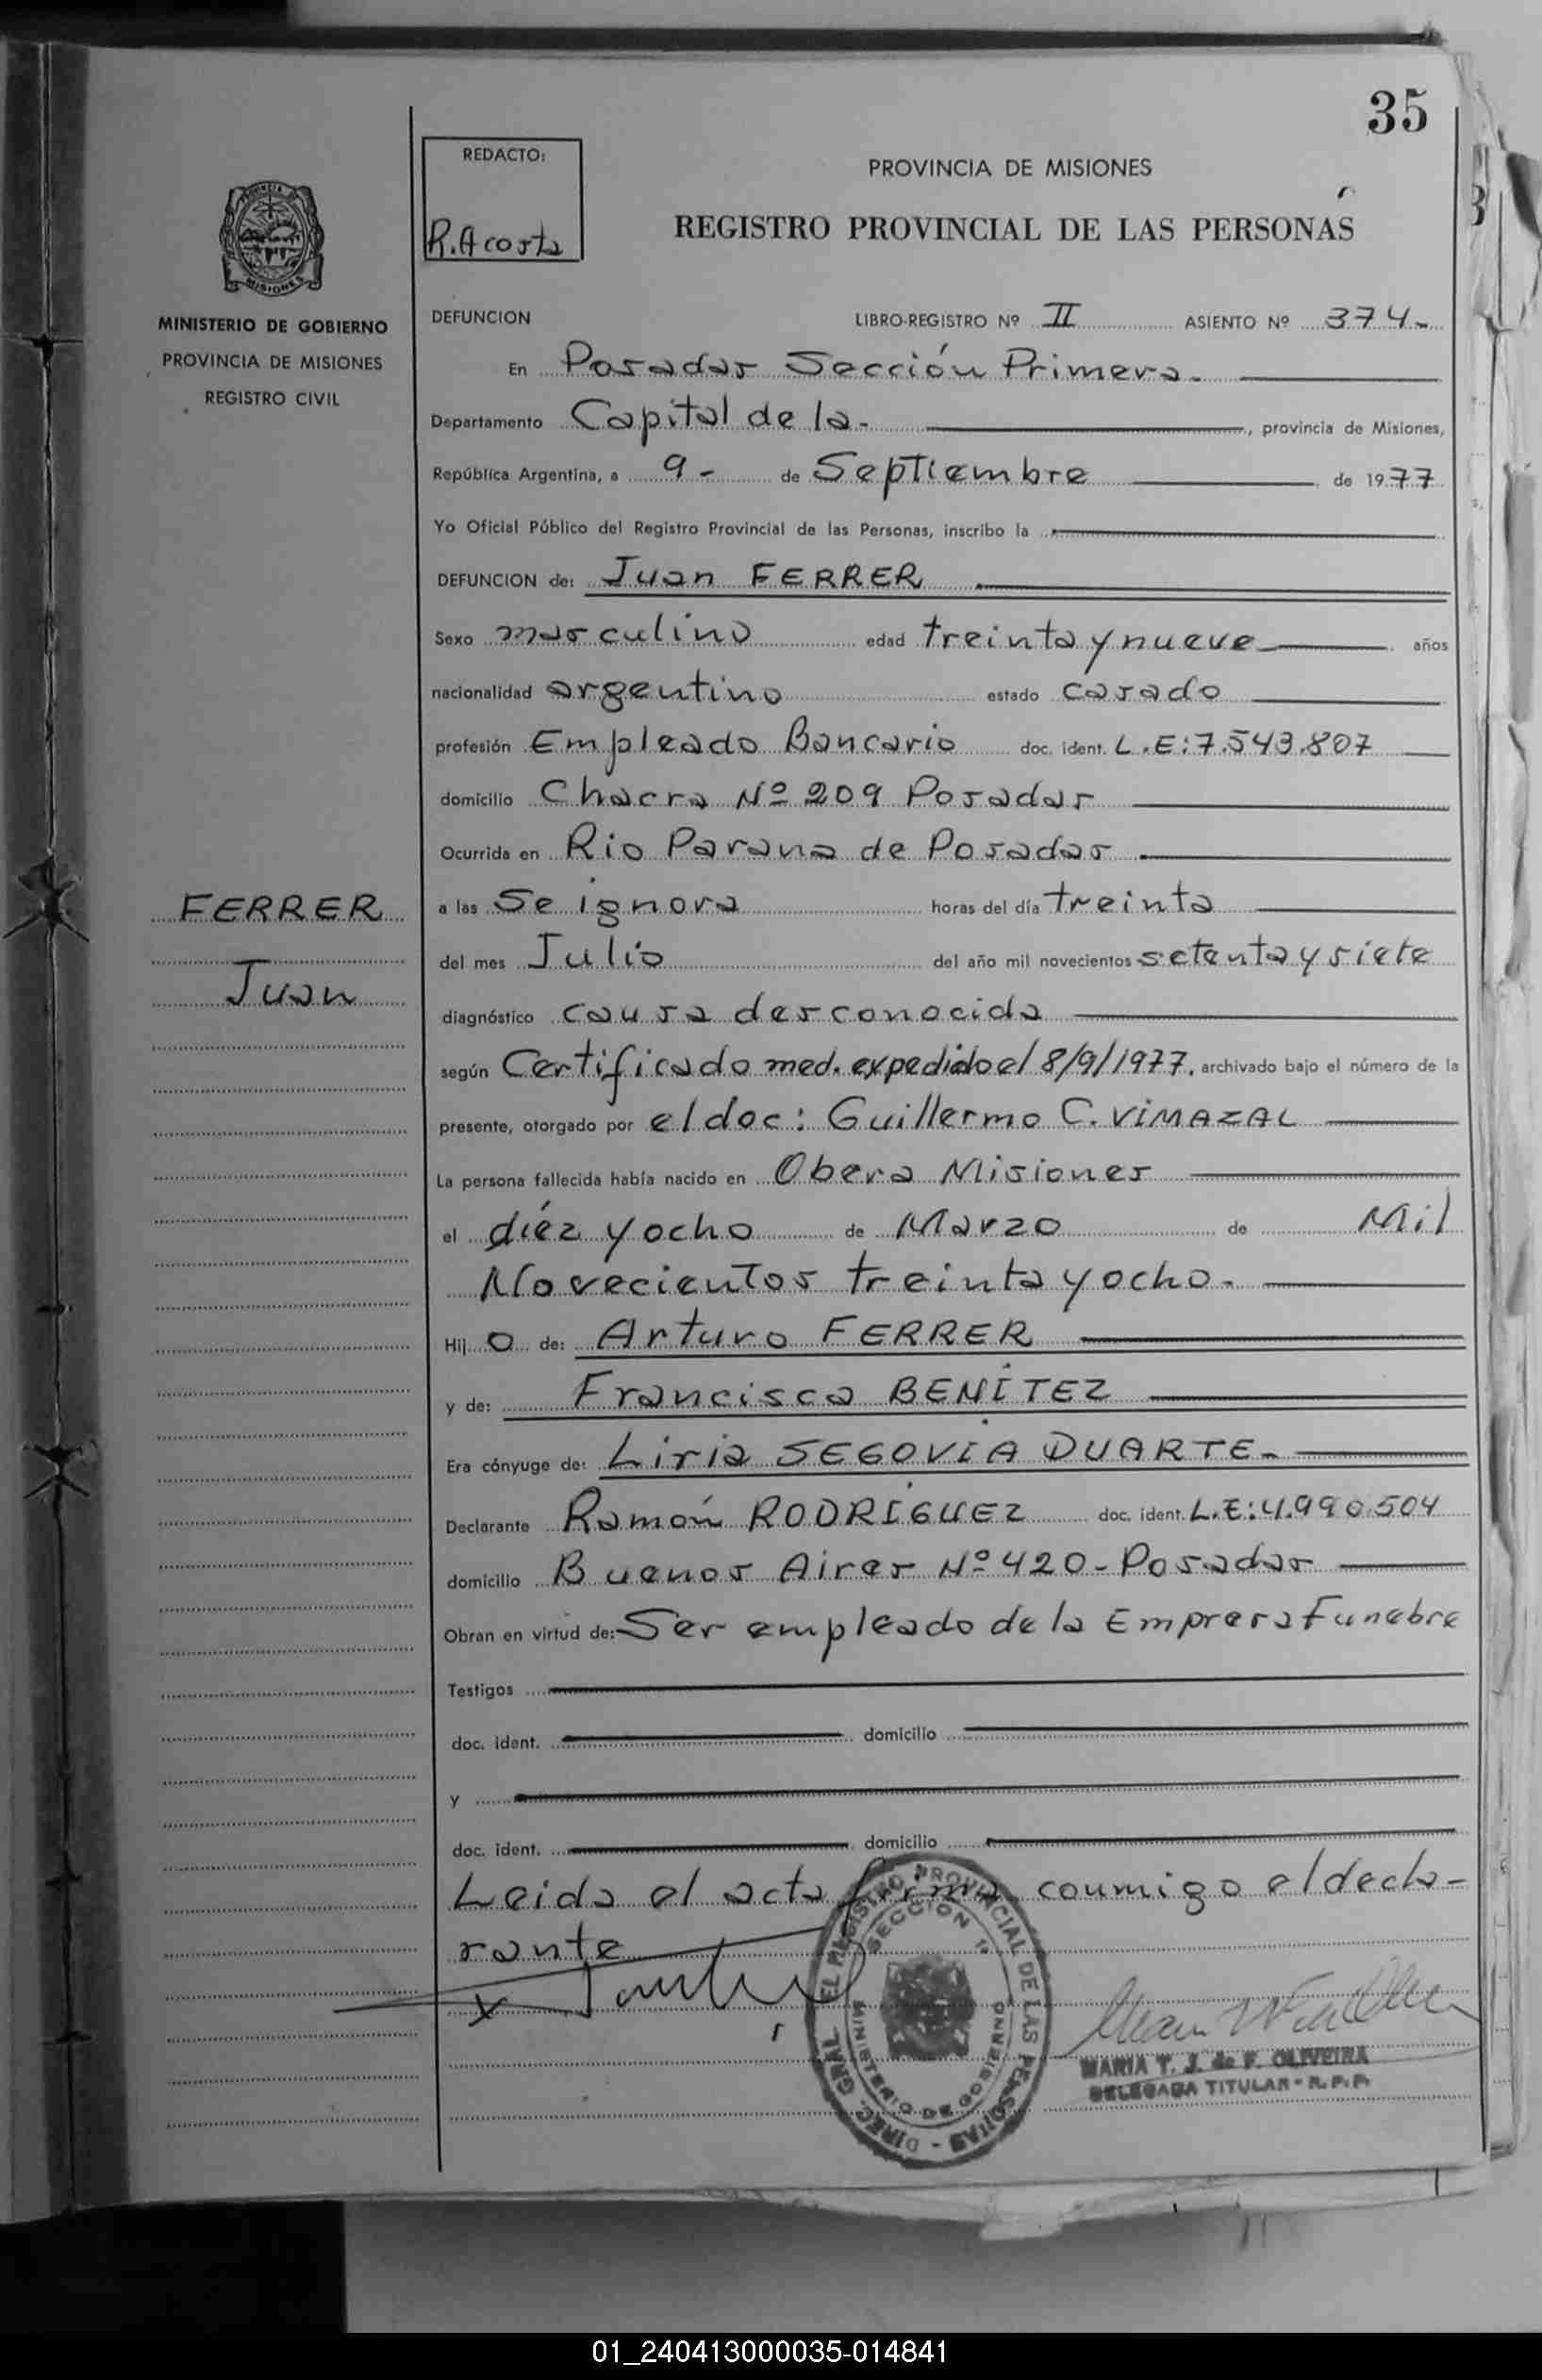 35
REDACTO:
R. Acosta
PROVINCIA DE MISIONES
REGISTRO PROVINCIAL DE LAS PERSONAS
PROVINCIA DE MISIONES
MINISTERIO DE GOBIERNO
PROVINCIA DE MISIONES
REGISTRO CIVIL
DEFUNCION LIBRO-REGISTRO Nº II ASIENTO Nº 374-
En Posadas Sección Primera.
Departamento Capital de la- , provincia de Misiones,
República Argentina, a 9- de Septiembre de 1977
Yo Oficial Público del Registro Provincial de las Personas, inscribo la
DEFUNCION de: Juan FERRER
Sexo masculino edad treinta y nueve años
nacionalidad argentino estado casado
profesión Empleado Bancario doc. ident. L.E:7.543.807
domicilio Chacra Nº 209 Posadas
Ocurrida en Rio Parana de Posadas
FERRER
Juan
a las Se ignora horas del día treinta
del mes Julio del año mil novecientos setenta y siete
diagnóstico causa desconocida
según Certificado med. expedido el 8/9/1977. archivado bajo el número de la
presente, otorgado por el doc: Guillermo C. ViMAZAL
La persona fallecida había nacido en Obera Misiones
el diéz y ocho de Marzo de Mil
Novecientos treinta y ocho.
Hij o de: Arturo FERRER
y de: Francisca BENÍTEZ
Era cónyuge de: Liria SEGOVIA DUARTE-
Declarante Ramón RODRÍGUEZ doc. ident. L.E:4.990.504
domicilio Buenos Aires Nº 420- Posadas
Obran en virtud de: Ser empleado de la Empresa Funebre
Testigos
doc. ident. domicilio
y
doc. ident. domicilio
Leida el acta firma conmigo el decla-
rante
x
DIREC. GRAL. EL REGISTRO PROVINCIAL DE LAS PERSONAS -
SECCION 1ª
MINISTERIO DE GOBIERNO
MARIA T. J. de F. OLIVEIRA
DELEGADA TITULAR - R.P.P.
01_240413000035-014841